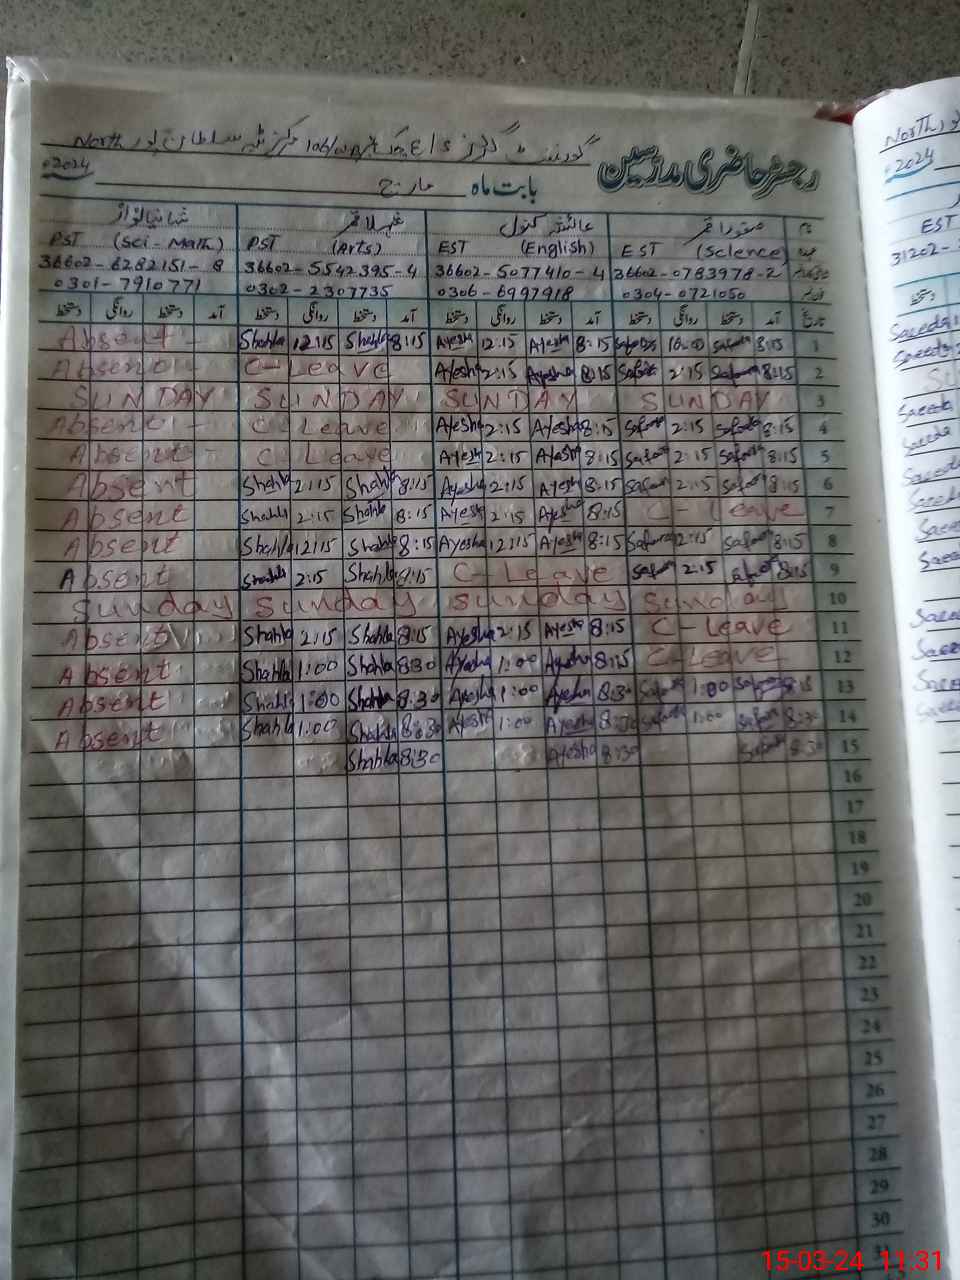 رجسٹر حاضری مدرسین
گورنمنٹ گرلز North
2024 بابت ماہ مارچ
شہلا قمر عائشہ کنول صفورا قمر
PST (Sci-Math) PST (Arts) EST (English) EST (Science)
36602-6282151-8 36602-5542395-4 36602-5077410-4 36602-0783978-2
0301-7910771 0302-2307735 0306-6997918 0304-0721050
دستخط روانگی دستخط آمد دستخط روانگی دستخط آمد دستخط روانگی دستخط آمد دستخط روانگی دستخط آمد تاریخ
Absent - Shahla 12:15 Shahla 8:15 Ayesha 12:15 Ayesha 8:15 Safoora Safoora 8:15 1
Absent C-Leave Ayesha 2:15 Ayesha 8:15 Safoora 2:15 Safoora 8:15 2
SUNDAY SUNDAY SUNDAY SUNDAY 3
Absent - C-Leave Ayesha 2:15 Ayesha 8:15 Safoora 2:15 Safoora 8:15 4
Absent C-Leave Ayesha 2:15 Ayesha 8:15 Safoora 2:15 Safoora 8:15 5
Absent Shahla 2:15 Shahla 8:15 Ayesha 2:15 Ayesha 8:15 Safoora 2:15 Safoora 8:15 6
Absent Shahla 2:15 Shahla 8:15 Ayesha 2:15 Ayesha 8:15 C-Leave 7
Absent Shahla 12:15 Shahla 8:15 Ayesha 12:15 Ayesha 8:15 Safoora 12:15 Safoora 8:15 8
Absent Shahla 2:15 Shahla 8:15 C-Leave Safoora 2:15 Safoora 8:15 9
Sunday Sunday Sunday Sunday 10
Absent Shahla 2:15 Shahla 8:15 Ayesha 2:15 Ayesha 8:15 C-Leave 11
Absent Shahla 1:00 Shahla 8:30 Ayesha 1:00 Ayesha 8:15 C-Leave 12
Absent Shahla 1:00 Shahla 8:30 Ayesha 1:00 Ayesha 8:30 Safoora 1:00 Safoora 8:15 13
Absent Shahla 1:00 Shahla 8:30 Ayesha 1:00 Ayesha 8:30 Safoora 1:00 Safoora 8:30 14
Shahla 8:30 Ayesha 8:30 Safoora 8:30 15
16
17
18
19
20
21
22
23
24
25
26
27
28
29
30
31
North
2024
EST
31202-
Saeeda
Saeeda
Saeeda
Saeeda
Saeeda
Saeeda
15-03-24 11:31